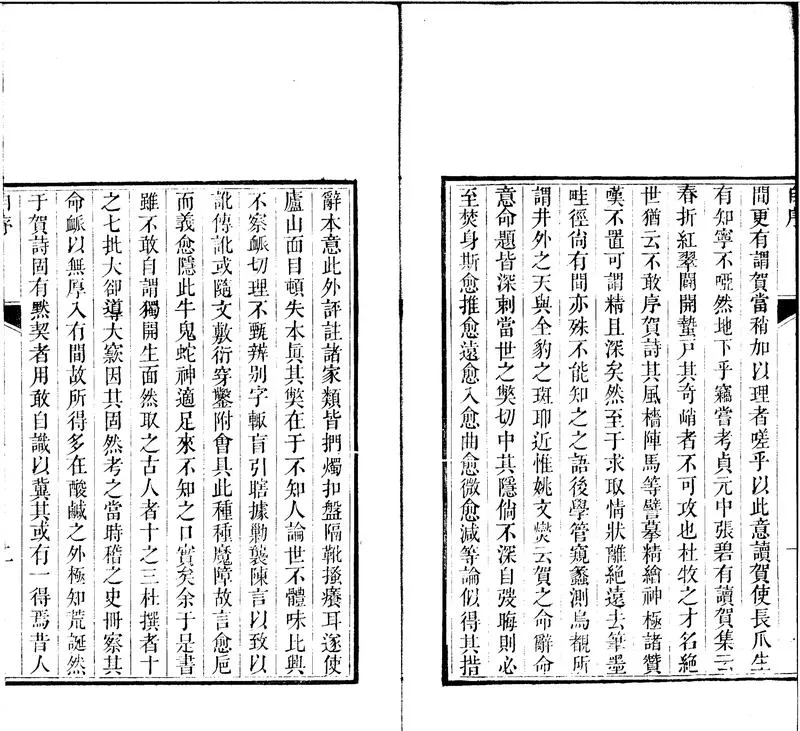 自序
間更有謂賀當稍加以理者嗟乎以此意讀賀使長爪生
有知寧不啞然地下乎竊嘗考貞元中張碧有讀賀集云
春折紅翠闢開蟄戸其奇峭者不可攻也杜牧之才名絶
世猶云不敢序賀詩其風檣陣馬等譬摹精繪神極諸贊
嘆不置可謂精且深矣然至于求取情狀離絶遠去筆墨
畦徑尙有間亦殊不能知之之語後學管窺蠡測烏覩所
謂井外之天與全豹之斑耶近惟姚文燮云賀之命辭命
意命題皆深刺當世之獘切中其隱倘不深自弢晦則必
至焚身斯愈推愈遠愈入愈曲愈微愈減等論似得其措
辭本意此外評註諸家類皆捫燭扣盤隔靴搔癢耳遂使
廬山面目頓失本眞其獘在于不知人論世不體味比興
不察脈切理不甄辨别字輙盲引瞎據勦襲陳言以致以
訛傳訛或隨文敷衍穿鑿附會具此種種魔障故言愈巵
而義愈隱此牛鬼蛇神適足來不知之口實矣余于是書
雖不敢自謂獨開生面然取之古人者十之三杜撰者十
之七批大卻導大窾因其固然考之當時稽之史冊察其
命脈以無厚入有間故所得多在酸鹹之外極知荒誕然
于賀詩固有默契者用敢自識以冀其或有一得焉昔人
自序